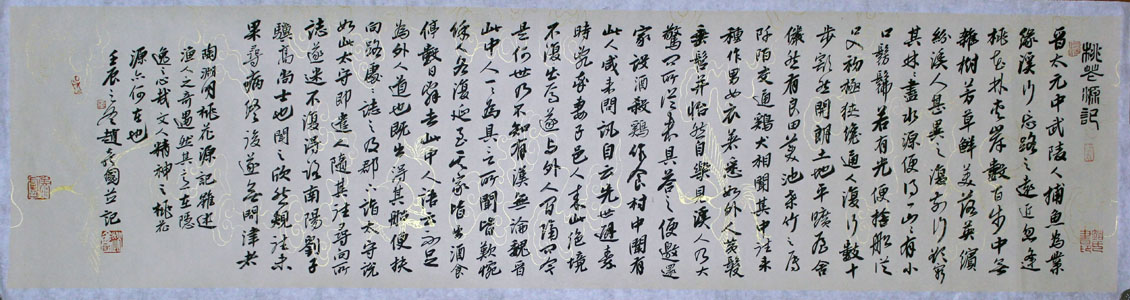 桃花源記
晉太元中武陵人捕魚為業
緣溪行忘路之遠近忽逢
桃花林夾岸數百步中無
雜樹芳草鮮美落英繽
紛溪人甚異之復前行欲窮
其林林盡水源便得一山山有小
口髣髴若有光便捨船從
口入初極狹纔通人復行數十
步豁然開朗土地平曠屋舍
儼然有良田美池桑竹之屬
阡陌交通雞犬相聞其中往來
種作男女衣著悉如外人黃髮
垂髫并怡然自樂見漁人乃大
驚問所從來具答之便邀還
家設酒殺雞作食村中聞有
此人咸來問訊自云先世避秦
時亂率妻子邑人來此絕境
不復出焉遂與外人間隔問今
是何世乃不知有漢無論魏晉
此中人一一為具言所聞皆歎惋
餘人各復延至其家皆出酒食
停數日辭去此中人語云不足
為外人道也既出得其船便扶
向路處處誌之及郡下詣太守說
如此太守即遣人隨其往尋向所
誌遂迷不復得路南陽劉子
驥高尚士也聞之欣然規往未
果尋病終後遂無問津者
陶淵明桃花源記雖述
漁人之奇遇然其意在隱
逸之心哉文人精神之桃花
源亦何在也
壬辰之趙國並記